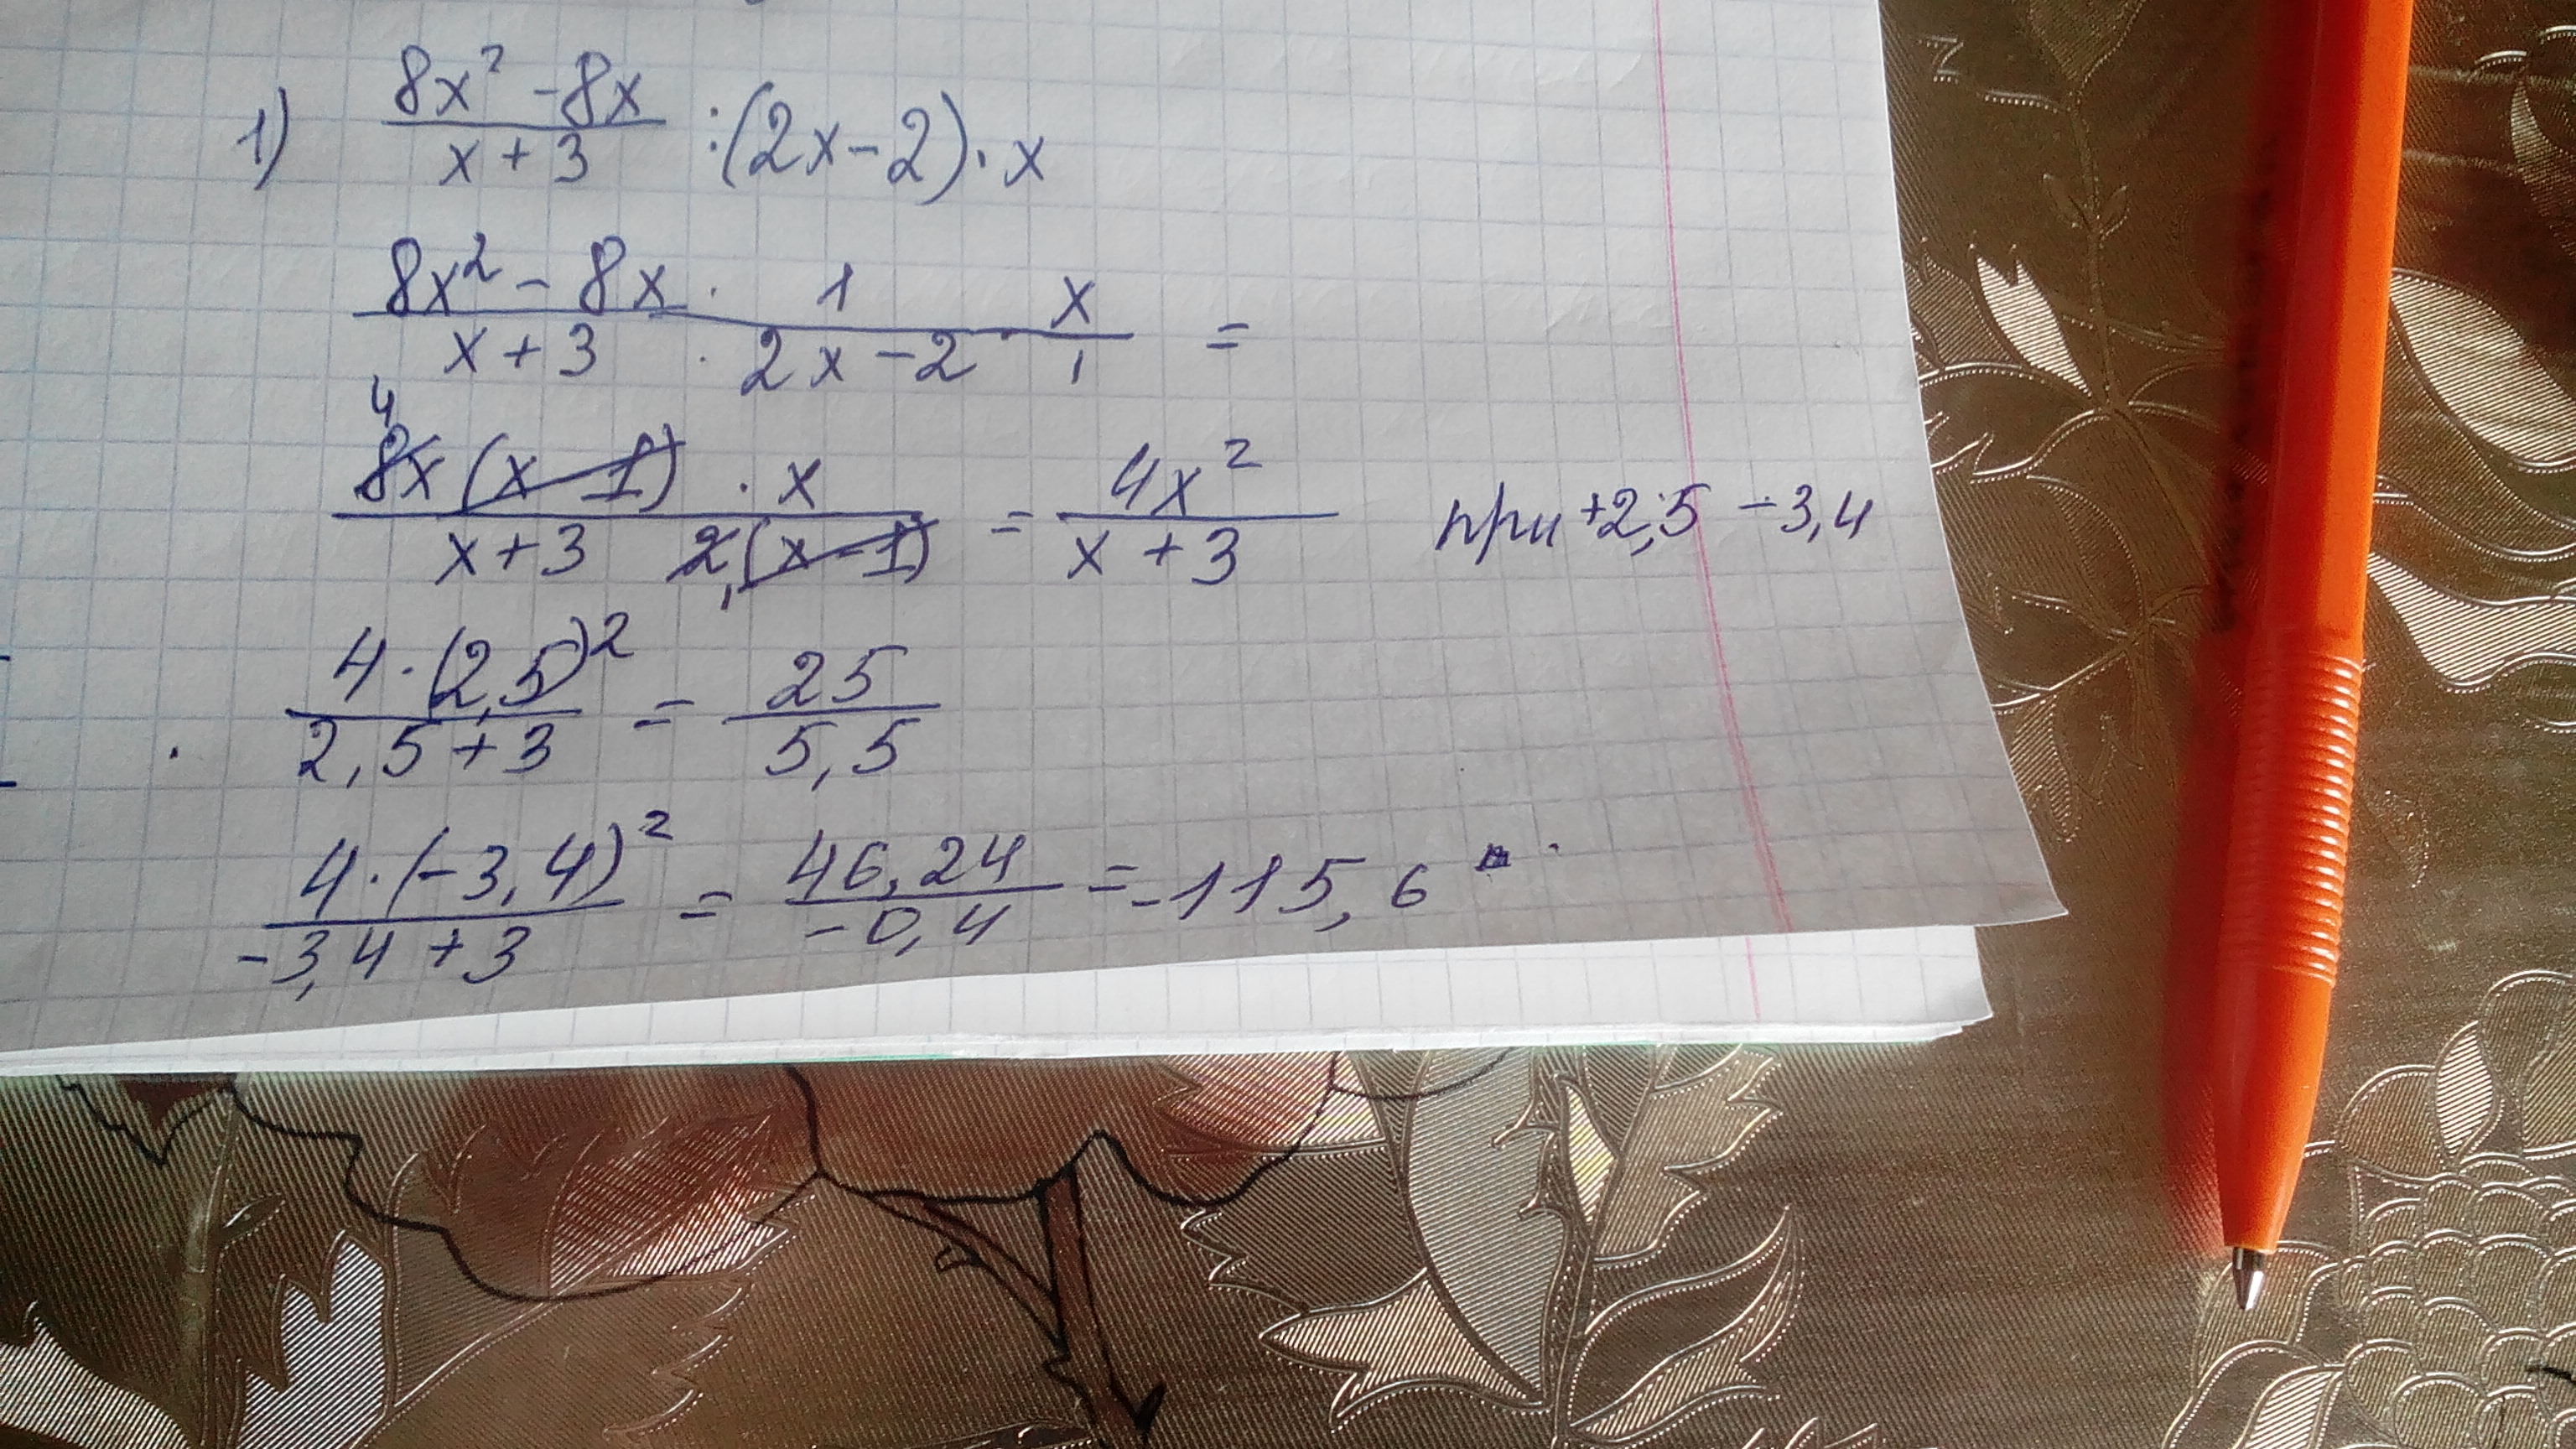 1) (8x² - 8x)/(x + 3) : (2x - 2) · x
(8x² - 8x)/(x + 3) · 1/(2x - 2) · x/1 =
4 8x(x - 1) · x / x + 3 2(x - 1) 1 = 4x²/(x + 3) при +2,5 -3,4
4 · (2,5)² / (2,5 + 3) = 25/5,5
4 · (-3,4)² / (-3,4 + 3) = 46,24/-0,4 = -115,6